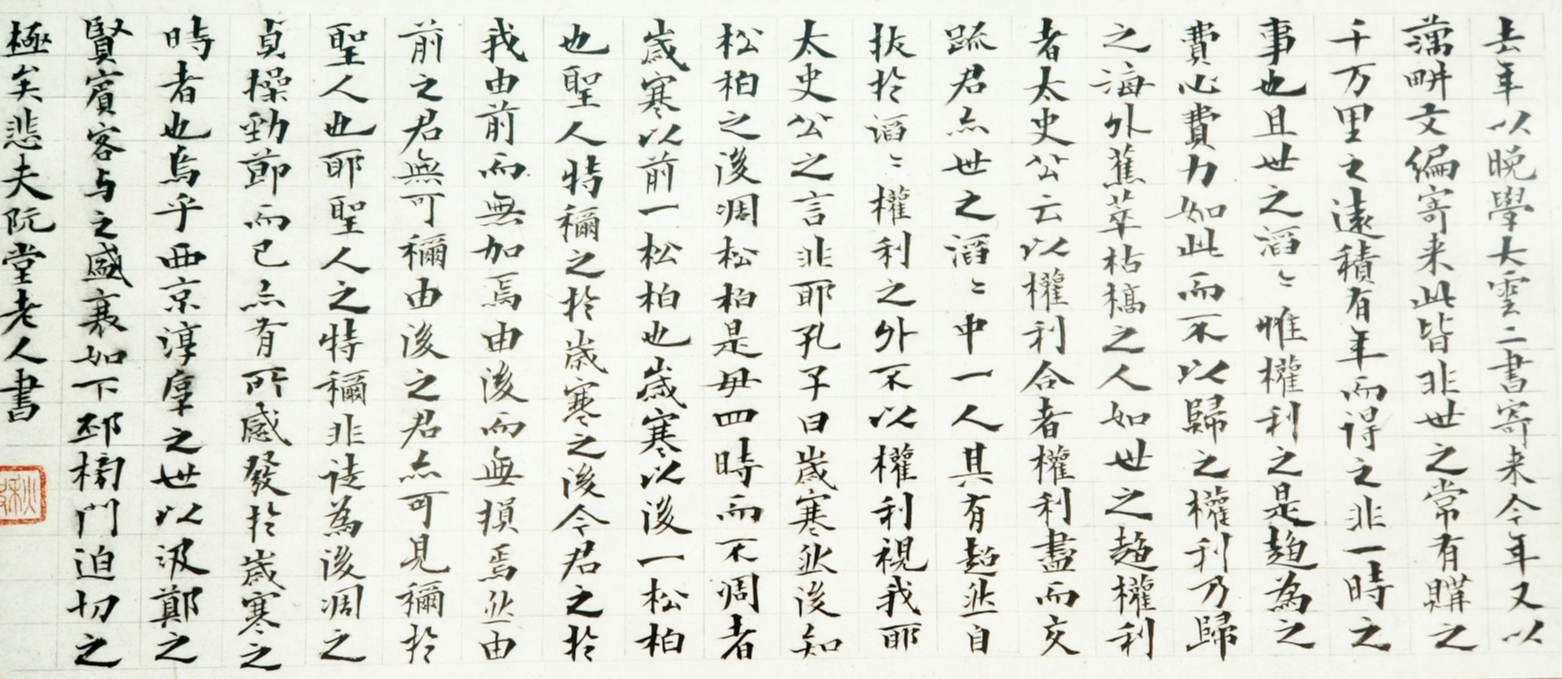 去年以晚學大雲二書寄来今年又以
藕畊文編寄来此皆非世之常有購之
千万里之遠積有年而得之非一時之
事也且世之滔〻惟權利之是趍為之
費心費力如此而不以歸之權利乃歸
之海外蕉萃枯槁之人如世之趍權利
者太史公云以權利合者權利盡而交
踈君亦世之滔〻中一人其有超然自
拔扵滔〻權利之外不以權利視我耶
太史公之言非耶孔子曰歲寒然後知
松柏之後凋松柏是毋四時而不凋者
歲寒以前一松柏也歲寒以後一松柏
也聖人特稱之扵歲寒之後今君之扵
我由前而無加焉由後而無損焉然由
前之君無可稱由後之君亦可見稱扵
聖人也耶聖人之特稱非徒為後凋之
貞操勁節而已亦有所感發扵歲寒之
時者也烏乎西京淳厚之世以汲鄭之
賢賓客与之盛衰如下邳榜門迫切之
極矣悲夫阮堂老人書